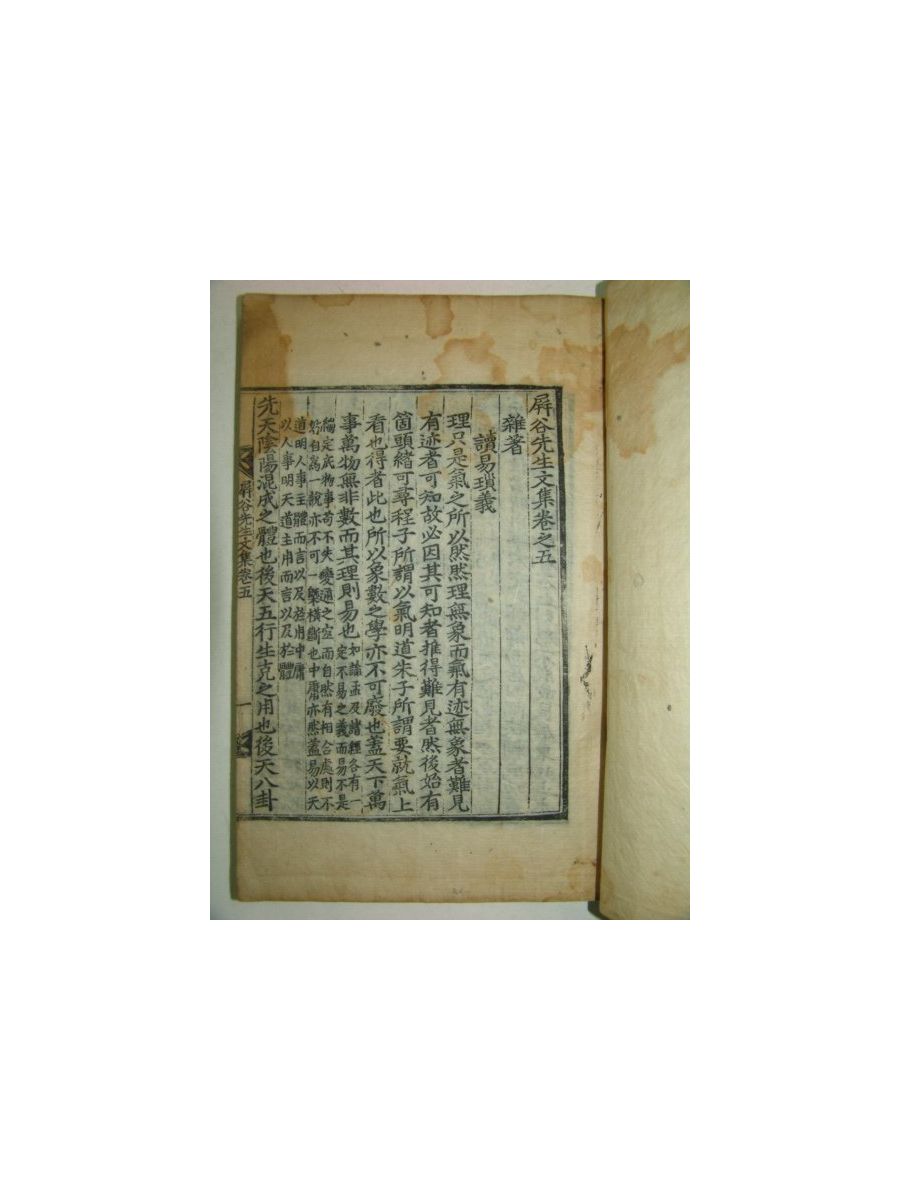 屛谷先生文集卷之五
雜著
讀易瑣義
理只是氣之所以然然理無象而氣有迹無象者難見
有迹者可知故必因其可知者推得難見者然後始有
箇頭緖可尋程子所謂以氣明道朱子所謂要就氣上
看也得者此也所以象數之學亦不可廢也蓋天下萬
事萬物無非數而其理則易也
如論孟及諸經各有一
定不易之義而易不是
編定底物事苟不失變通之宜而自然有相合處則不
妨自爲一說亦不可一槩橫斷也中庸亦然蓋易以天
道明人事主體而言以及於用中庸
以人事明天道主用而言以及於體
先天陰陽混成之體也後天五行生克之用也後天八卦
屛谷先生文集卷五
一